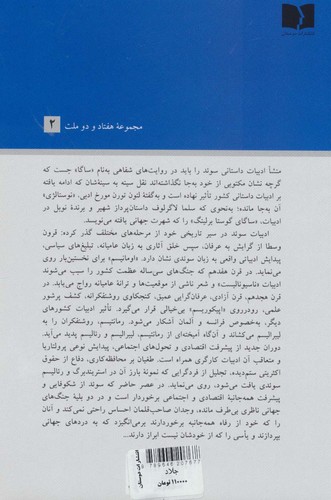 مجموعهٔ هفتاد و دو ملت
۲
منشأ ادبیات داستانی سوئد را باید در روایت‌های شفاهی به‌نام «ساگا» جست که
گرچه نشان مکتوبی از خود به‌جا نگذاشته‌اند نقل سینه به سینه‌شان که ادامه یافته
بر ادبیات داستانی کشور تأثیر نهاده است و به‌گفتهٔ لئون تورن مورخ ادبی، «نوستالژی»
آن به‌جا مانده؛ به‌نحوی که سلما لاگرلوف داستان‌پرداز شهیر و برندهٔ نوبل در
ادبیات، «ساگای گوستا برلینگ» را که شهرت جهانی یافته می‌نویسد.
ادبیات سوئد در سیر تاریخی خود از مرحله‌های مختلف گذر کرده: قرون
وسطا از گرایش به عرفان، سپس خلق آثاری به زبان عامیانه، تبلیغ‌های سیاسی،
پیدایش ادبیاتی واقعی به زبان سوئدی نشان دارد. «اومانیسم» برای نخستین‌بار روی
می‌نماید. در قرن هفدهم که جنگ‌های سی‌ساله عظمت کشور را سبب می‌شوند
ادبیات «ناسیونالیست» و شعر ناشی از موقعیت‌ها و ترانهٔ عامیانه رواج می‌یابد. در
قرن هجدهم، قرن آزادی، عرفان‌گرایی عمیق، کنجکاوی روشنفکرانه، کشف پرشور
علمی، رودرروی «اپیکوریسم» بی‌خیالی قرار می‌گیرد. تأثیر ادبیات کشورهای
دیگر، به‌خصوص فرانسه و آلمان آشکار می‌شود. رمانتیسم، روشنفکران را به
لیبرالیسم می‌کشاند و آن‌گاه آمیخته‌ای از رمانتیسم، لیبرالیسم و رئالیسم پدید می‌آید.
دوران جدید از پیشرفت اقتصادی و تحول‌های اجتماعی، پیدایش نوعی پرولتاریا
و متعاقب آن ادبیات کارگری همراه است. طغیان بر محافظه‌کاری، دفاع از حقوق
اکثریتی ستم‌دیده، تجلیل از فردگرایی که نمونهٔ بارز آن در استریندبرگ و رئالیسم
سوئدی یافت می‌شود، روی می‌نماید. در عصر حاضر که سوئد از شکوفایی و
پیشرفت همه‌جانبهٔ اقتصادی و اجتماعی برخوردار است و در دو بلیهٔ جنگ‌های
جهانی ناظری بی‌طرف مانده، وجدان صاحب‌قلمان احساس راحتی نمی‌کند و آنان
را که خود از رفاه همه‌جانبه برخوردارند برمی‌انگیزد که به دردهای جهانی
بپردازند و یأسی را که از خودشان نیست ابراز دارند...
جلاد
۱۱۰۰۰۰ تومان